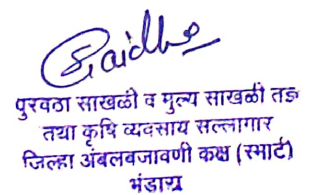 पुरवठा साखळी व मुल्य साखळी तज्ञ
तथा कृषि व्यवसाय सल्लागार
जिल्हा अंबलबजावणी कक्ष (स्मार्ट)
भंडारा